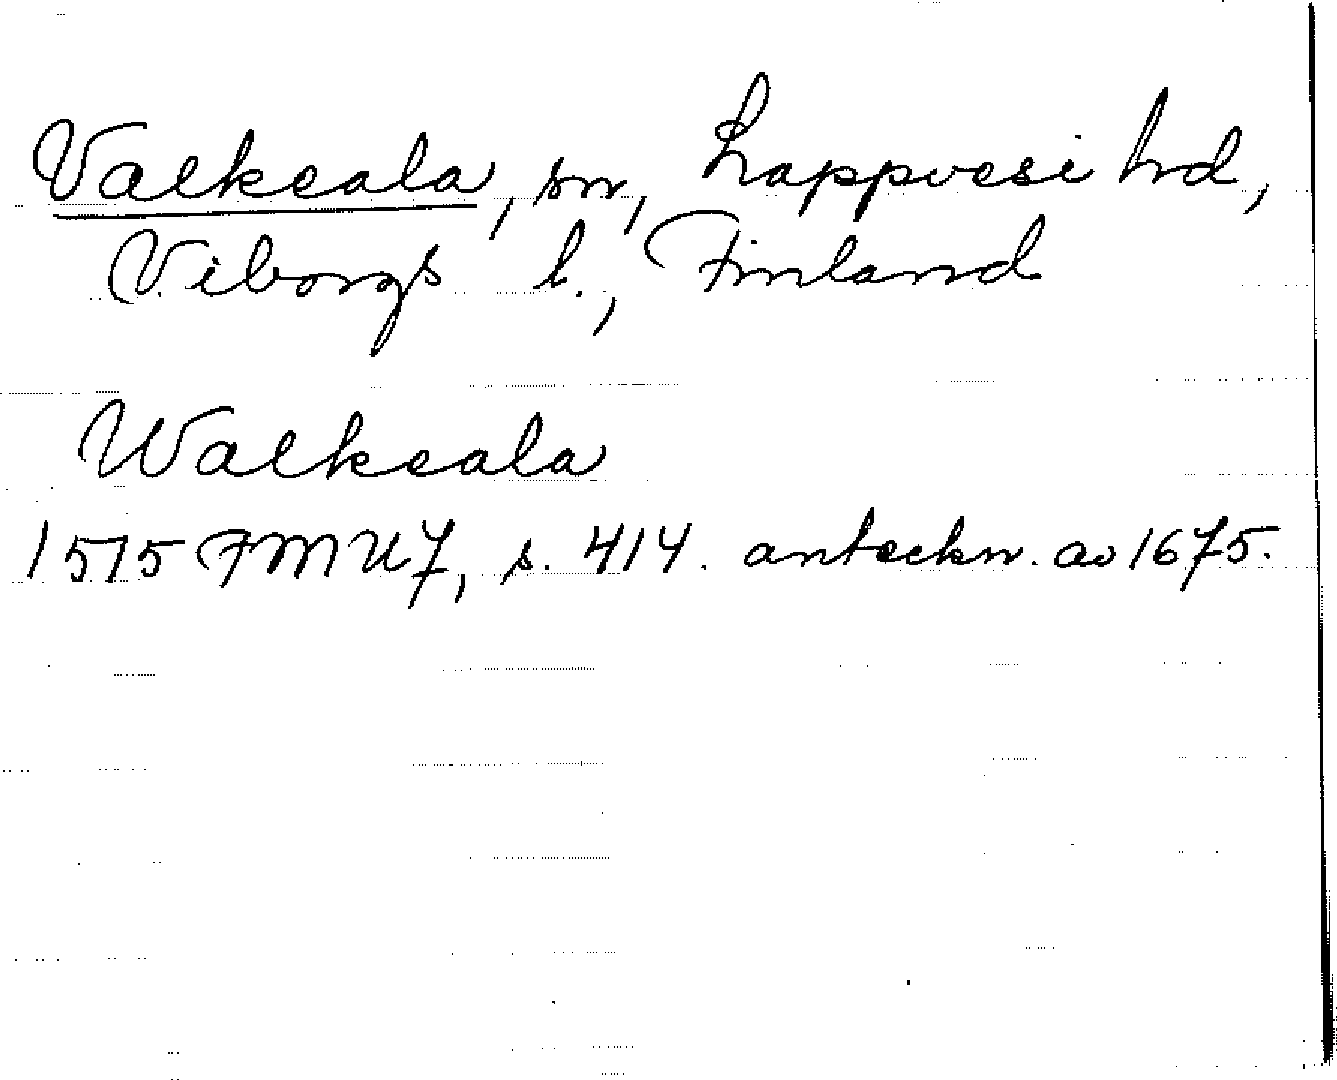 Valkeala, sn, Lappvesi hd,
Viborgs l., Finland
Walkeala
1575 FMU 7, s. 414. anteckn. av 1675.